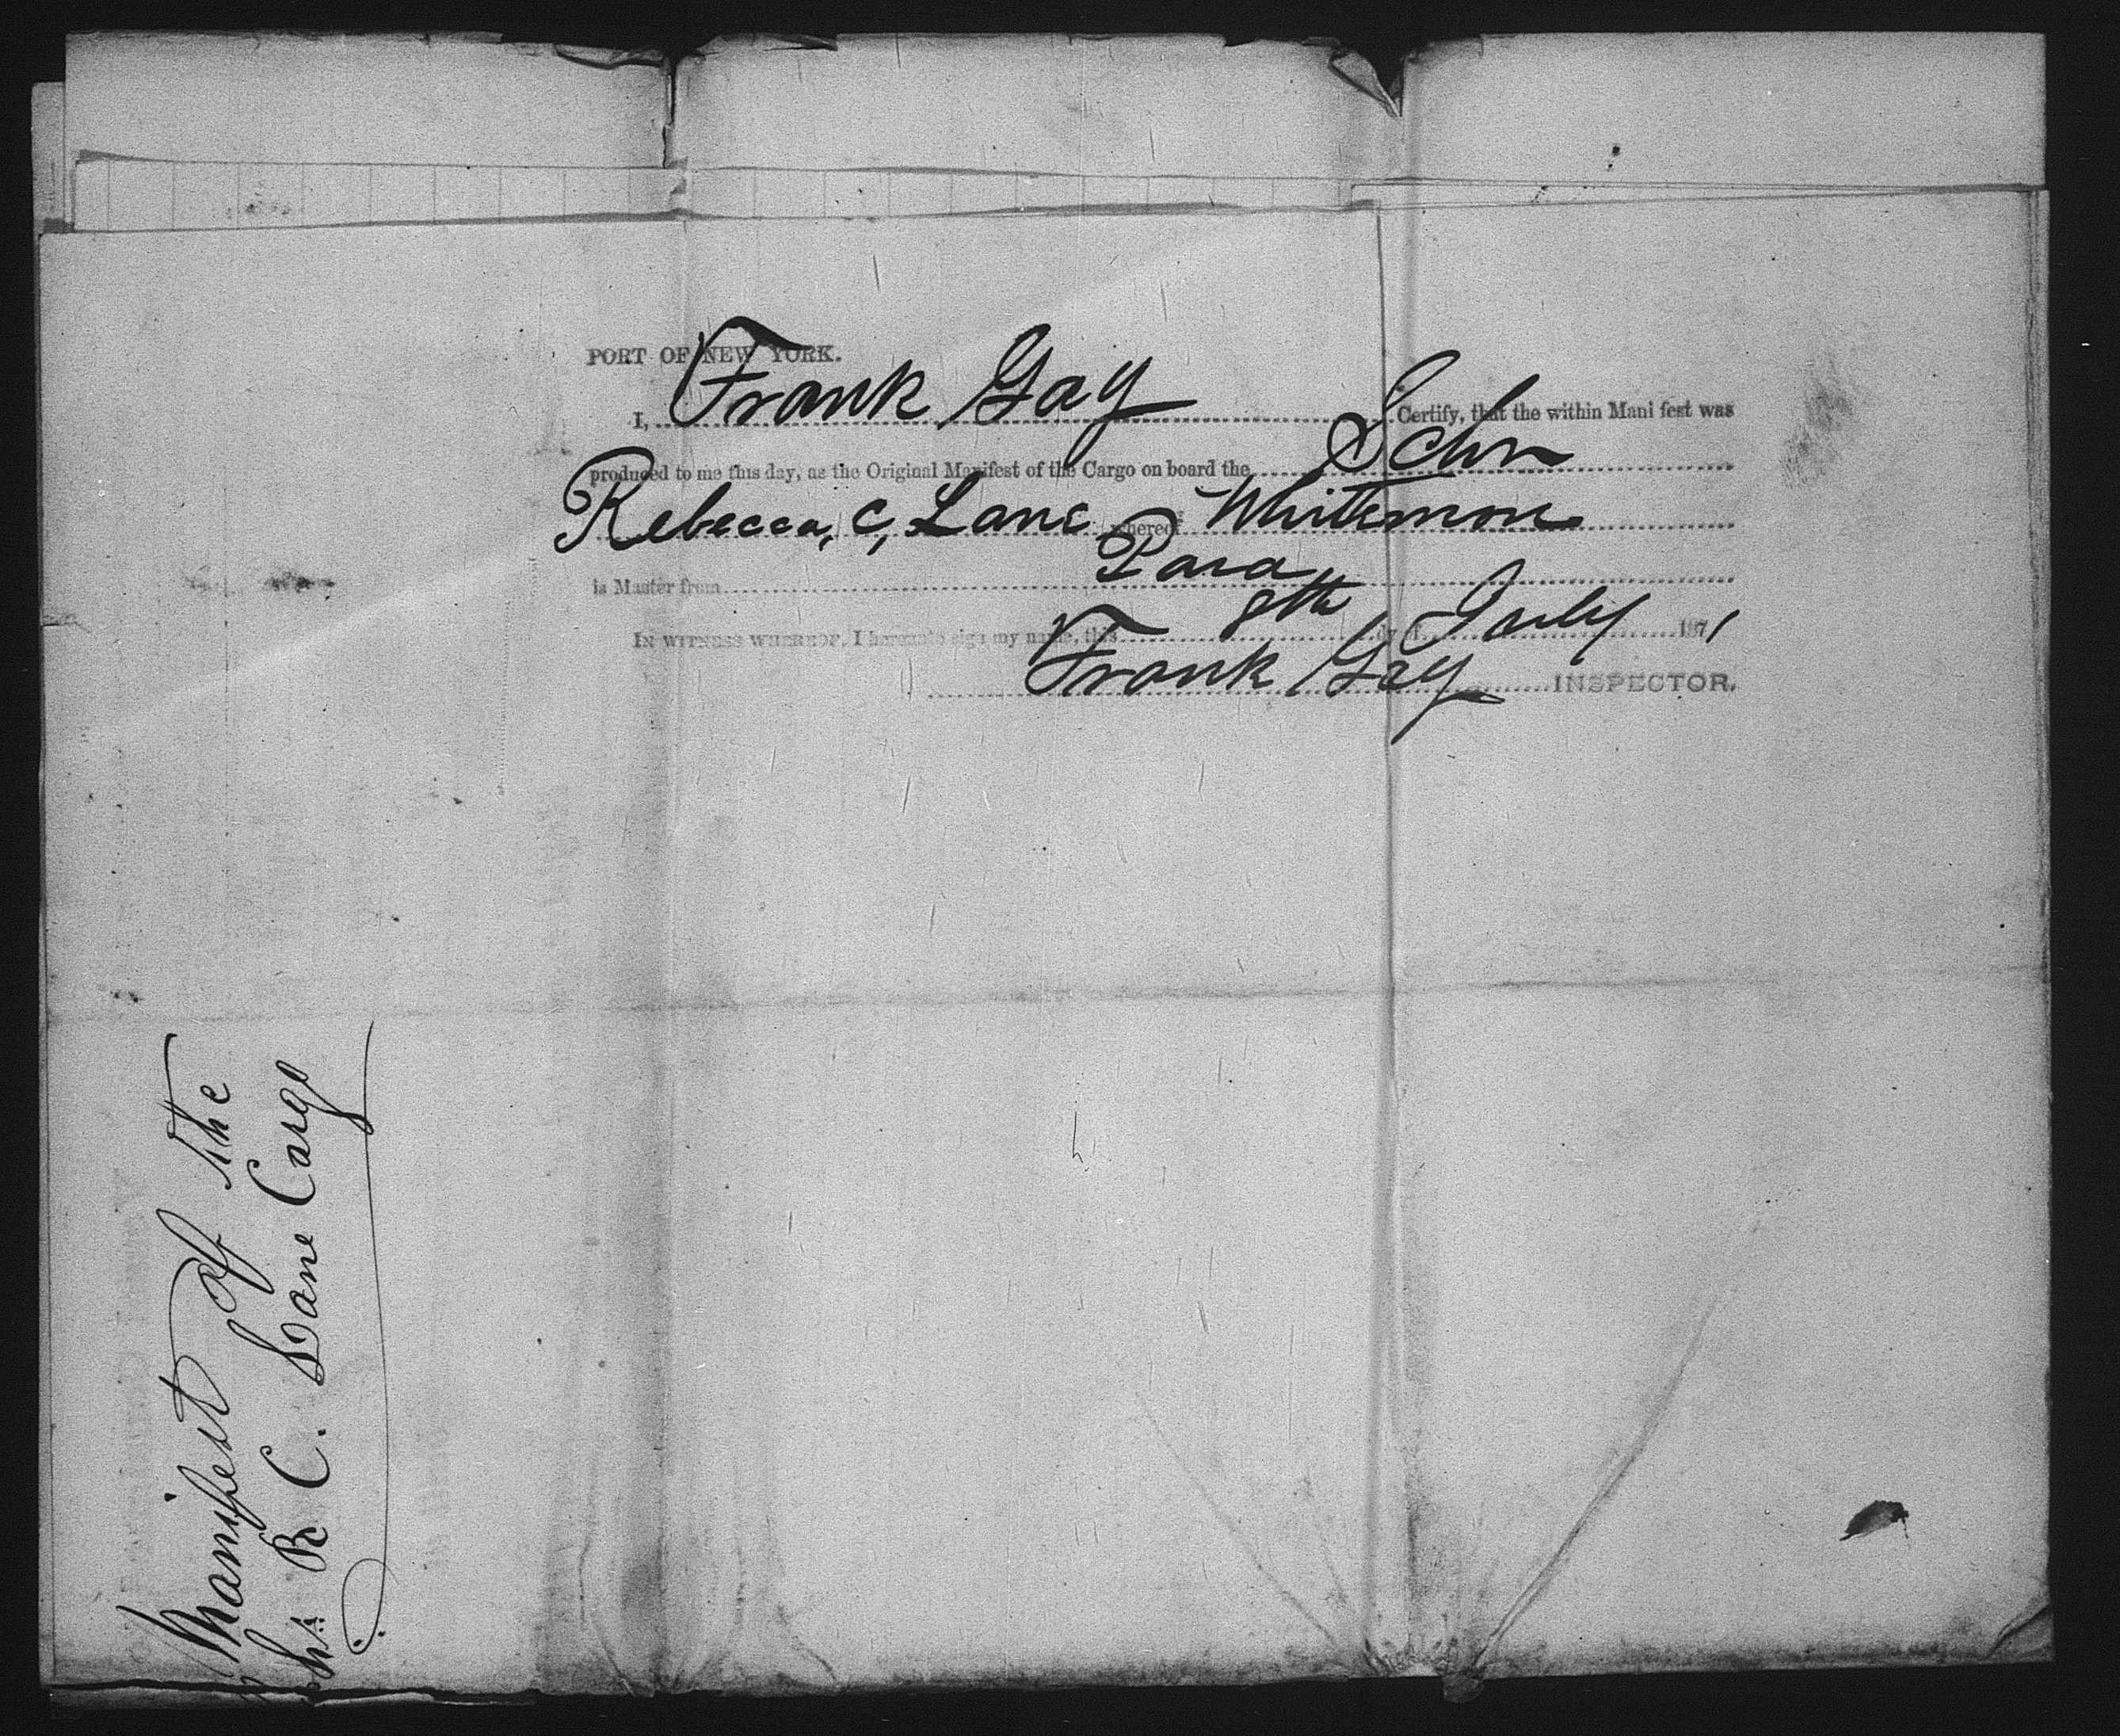 PORT OF NEW YORK.
I, Frank Gay Certify, that the within Mani fest was
produced to me this day, as the Original Manifest of the Cargo on board the Schr
Rebecca, C, Lane whereof Whitemore
is Master from Para
IN WITNESS WHEREOF, I hereunto sign my name, this 8th day of July 1871
Frank Gay INSPECTOR.
Manifest of the
Schr. R C. Lane Cargo